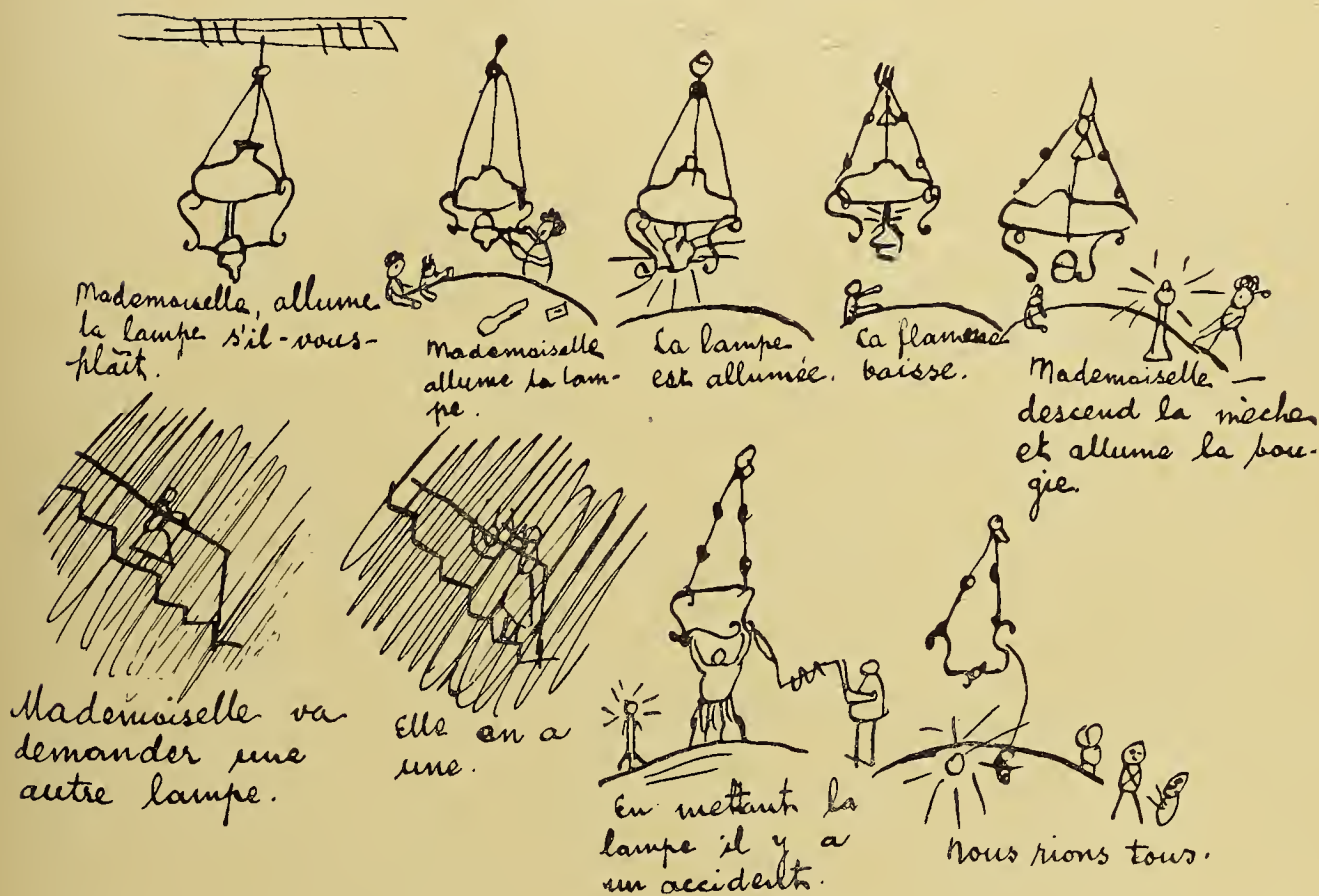 Mademoiselle, allume
la lampe s'il-vous-
plaît.
Mademoiselle
allume la lam-
pe.
La lampe
est allumée.
La flamme
baisse.
Mademoiselle —
descend la mèche
et allume la bou-
gie.
Mademoiselle va
demander une
autre lampe.
Elle en a
une.
En mettant la
lampe il y a
un accident.
Nous rions tous.